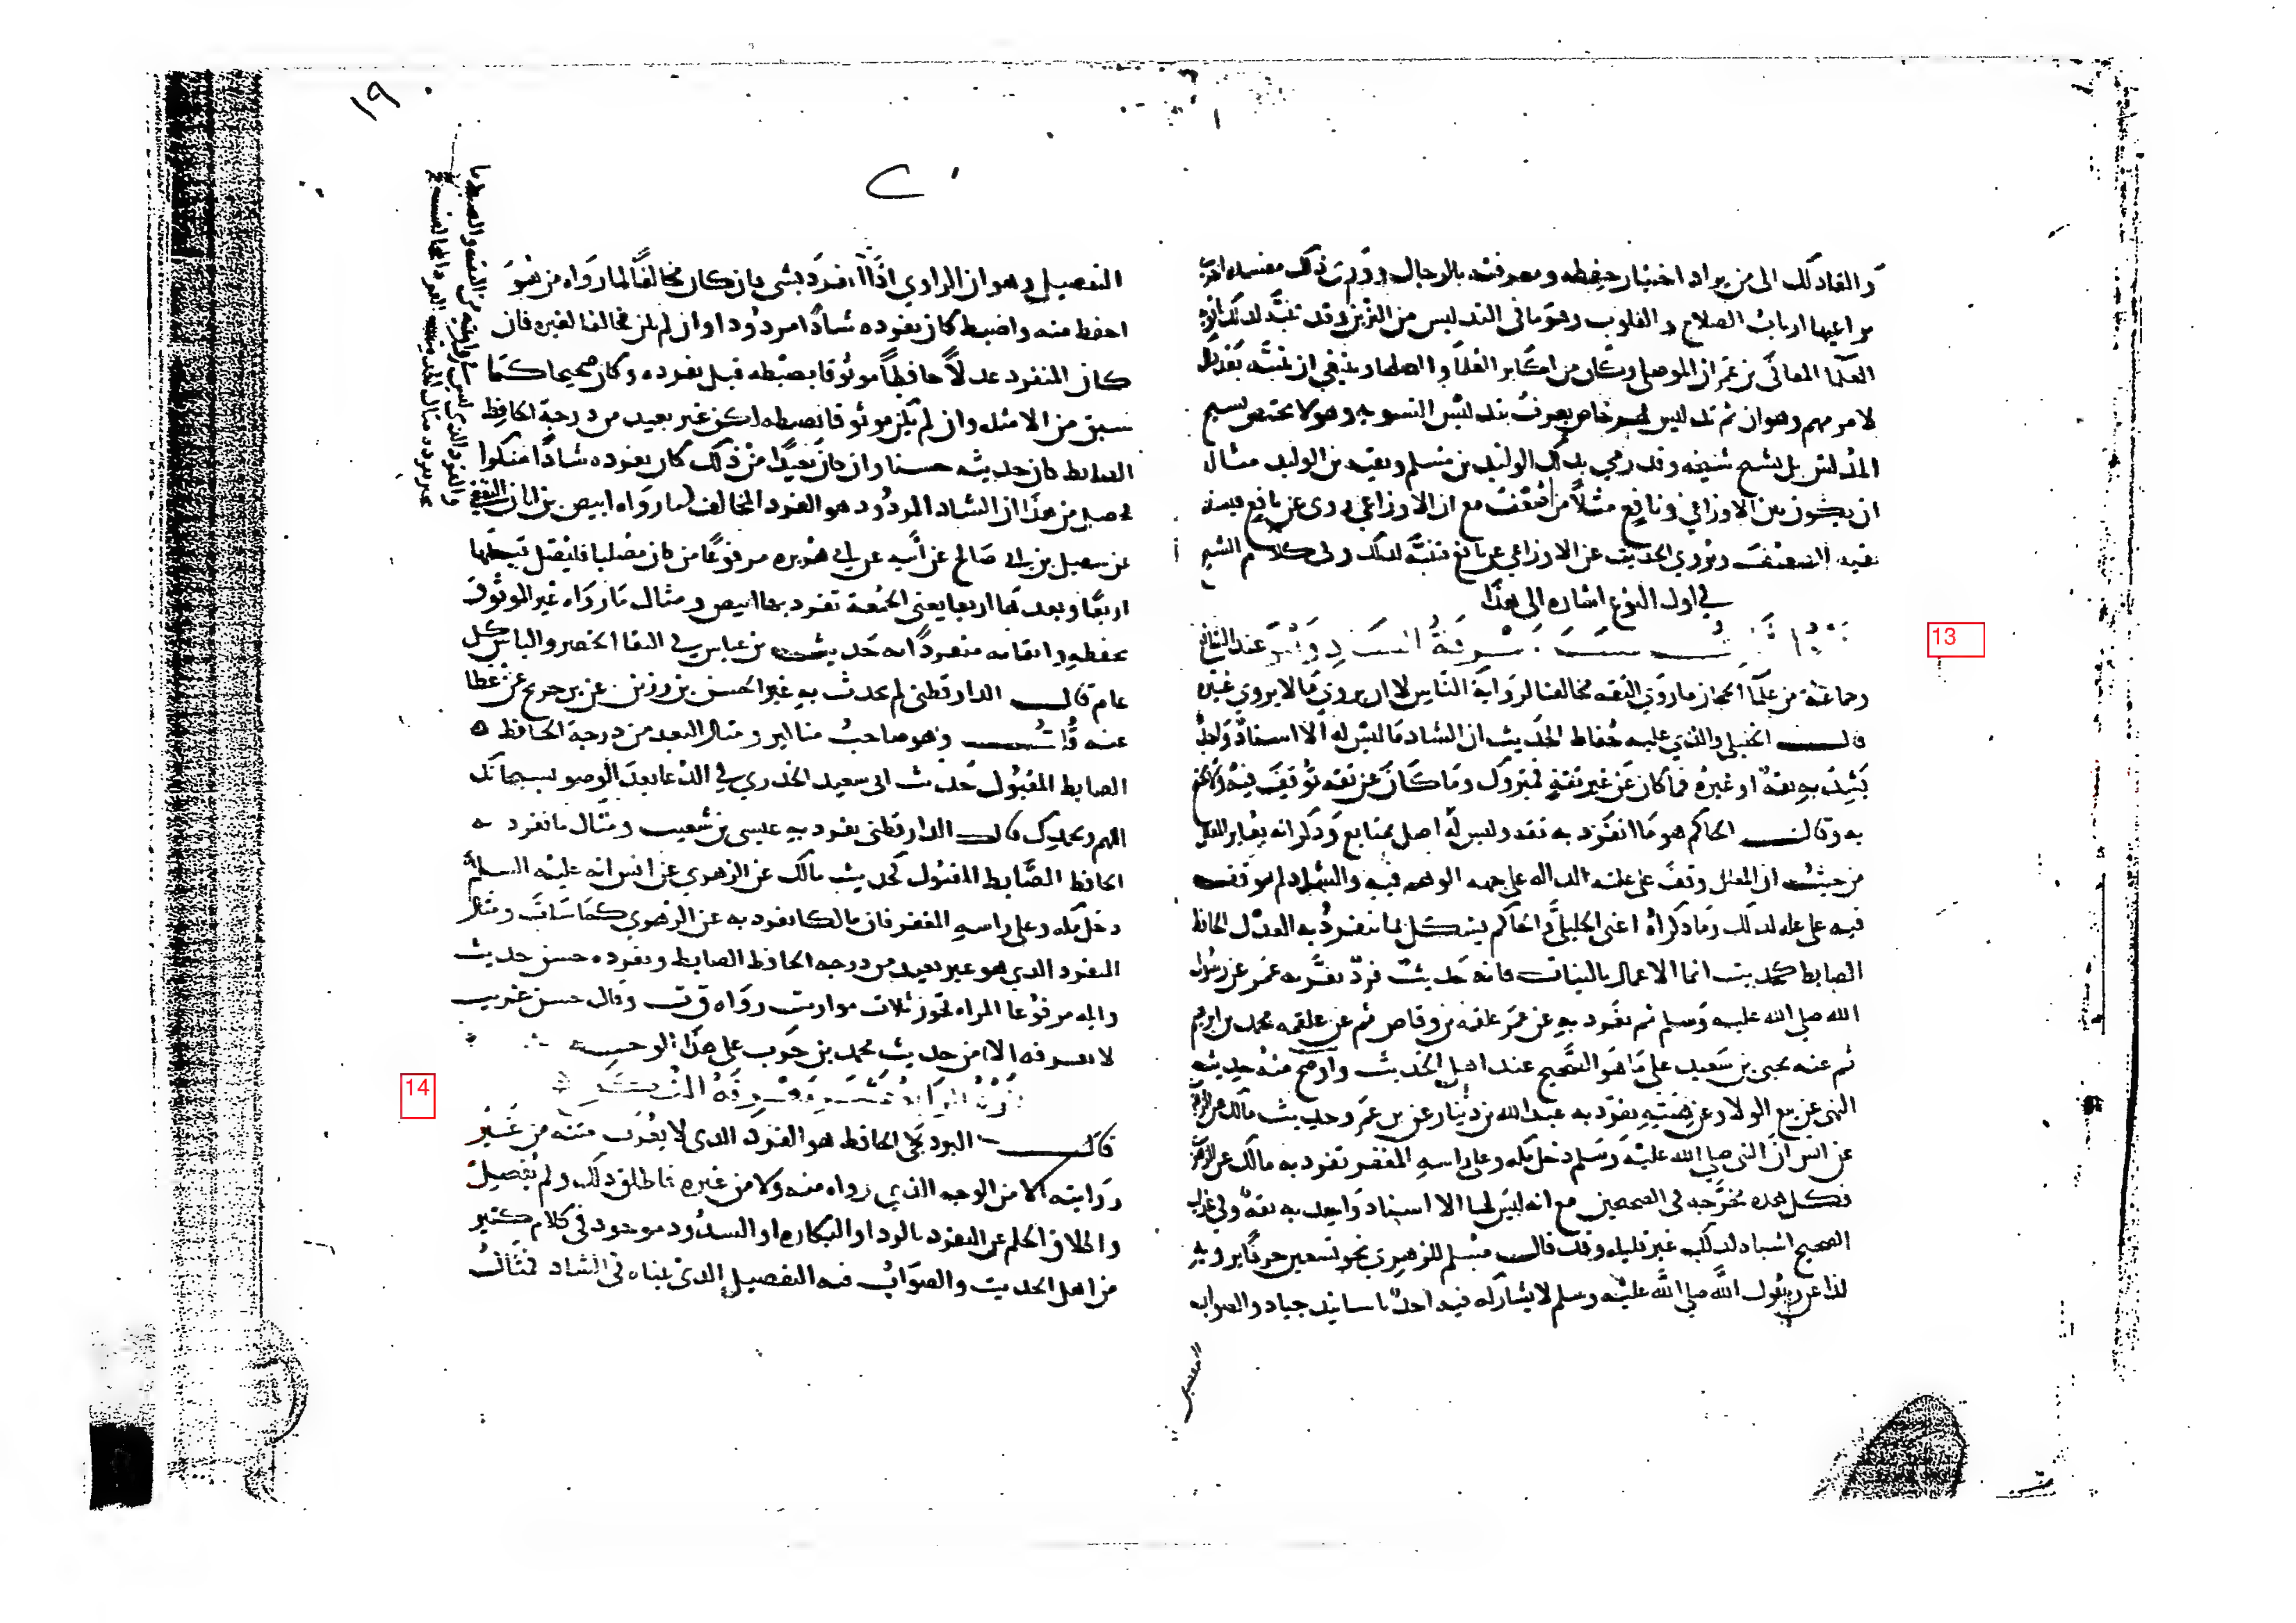 والقا ذلك الى من يراد اختبار حفظه ومعرفته بالرجال ووراء ذلك مفسدة اخرى
يراعيها ارباب الصلاح والقلوب وهو ما فى التدليس من التزين وقد تنبه لذلك
العلما المعافى بن عمران الموصلى وكان من اكابر العلما والصلحا وينبغى ان
لامر مهم وهو ان ثم تدليس خاص يعرف بتدليس التسويه وهو لا يختص بشيخ
المدلس بل بشيخ شيخه وقد رمي بذلك الوليد بن مسلم وبقيه بن الوليد مثاله
ان يكون بين الاوزاعي ونافع مثلا من ضعف مع ان الاوزاعي روى عن نافع فيسقط
بقيه الضعيف ويروي الحديث عن الاوزاعي عن نافع فتنبه لذلك وفى كلام الشيخ
في اول النوع اشاره الى هذا
النوع الثالث عشر معرفة الشاذ وهو عند الشافعي
وجماعة من علما الحجاز ما روى الثقه مخالفا لرواية الناس لا ان يروي ما لا يروي غيره
قال الخليلي والذي عليه حفاظ الحديث ان الشاذ ما ليس له الا اسناد واحد
يشذ به ثقة او غيره فما كان عن غير ثقة فمتروك وما كان عن ثقه توقف فيه ولا يحتج
به وقال الحاكم هو ما انفرد به ثقه وليس له اصل بمتابع وذكر انه يغاير المعلل
من حيث ان المعلل وقف على علته الداله على جهه الوهم فيه والشاذ لم يوقف
فيه على عله لذلك وما ذكراه اعنى الخليلي والحاكم يشكل بما ينفرد به العدل الحافظ
الضابط كحديث انما الاعمال بالنيات فانه حديث فرد تفرد به عمر عن رسول
الله صلى الله عليه وسلم ثم تفرد به عن عمر علقمه بن وقاص ثم عن علقمه محمد بن ابرهيم
ثم عنه يحيى بن سعيد على ما هو الصحيح عند اهل الحديث واوضح منه حديث
النهى عن بيع الولا وعن هبته تفرد به عبد الله بن دينار عن بن عمر وحديث مالك عن الزهرى
عن انس ان النبى صلى الله عليه وسلم دخل مكه وعلى راسه المغفر تفرد به مالك عن الزهرى
فكل هذه مخرجه فى الصحيحين مع انه ليس لها الا اسناد واحد به ثقة وفى غرايب
الصحيح اشباه لذلك غير قليله وقد قال مسلم للزهري نحو تسعين حرفا يرويه
لذا عن رسول الله صلى الله عليه وسلم لا يشاركه فيه احد باسانيد جياد والصواب
التفصيل
13
١٩
التفصيل وهو ان الراوي اذا انفرد بشى فان كان مخالفا لما رواه من هو
احفظ منه واضبط كان تفرده شاذا مردودا وان لم يكن مخالفا لغيره فان
كان المنفرد عدلا حافظا موثوقا بضبطه قبل تفرده وكان صحيحا كما
سبق من الامثله وان لم يكن موثوقا بضبطه لكن غير بعيد من درجة الحافظ
الضابط كان حديثه حسنا وان كان بعيدا من ذلك كان تفرده شاذا منكرا
فحصل من هذا ان الشاذ المردود هو الفرد المخالف لما رواه ابيض بن ابان الثقفي
عن سهيل بن ابى صالح عن ابيه عن ابي هريره مرفوعا من كان مصليا فليصل قبلها
اربعا وبعدها اربعا يعنى الجمعة تفرد بها ابيض ومثال ما رواه غير الموثوق
بحفظه واتقانه منفردا به حديث بن عباس في التقا الخضر والياس كل
عام قال الدارقطنى لم يحدث به غير الحسن بن رزين عن بن جريج عن عطا
عنه قلت وهو صاحب مناكير ومثال البعد من درجة الحافظ
الضابط المقبول حديث ابى سعيد الخدري في الدعا بعد الوضو سبحانك
اللهم وبحمدك قال الدارقطنى تفرد به عيسى بن شعيب ومثال ما تفرد به
الحافظ الضابط المقبول كحديث مالك عن الزهري عن انس انه عليه السلام
دخل مكه وعلى راسه المغفر فان مالكا تفرد به عن الزهري كما سلف ومثال
التفرد الذي هو غير بعيد من درجه الحافظ الضابط وتفرده حسن حديث
واثله مرفوعا المراه تحوز ثلاث مواريث رواه ق ت وقال حسن غريب
لا نعرفه الا من حديث محمد بن حرب على هذا الوجه
النوع الرابع عشر معرفة المنكر
قال البرديجى الحافظ هو الفرد الذى لا يعرف متنه من غير
روايته لا من الوجه الذي رواه منه ولا من غيره فاطلق ذلك ولم يفصل
واطلاق الحكم على التفرد بالرد او النكاره او الشذوذ موجود فى كلام كثير
من اهل الحديث والصواب فيه التفصيل الذى بيناه فى الشاذ فمثال
14